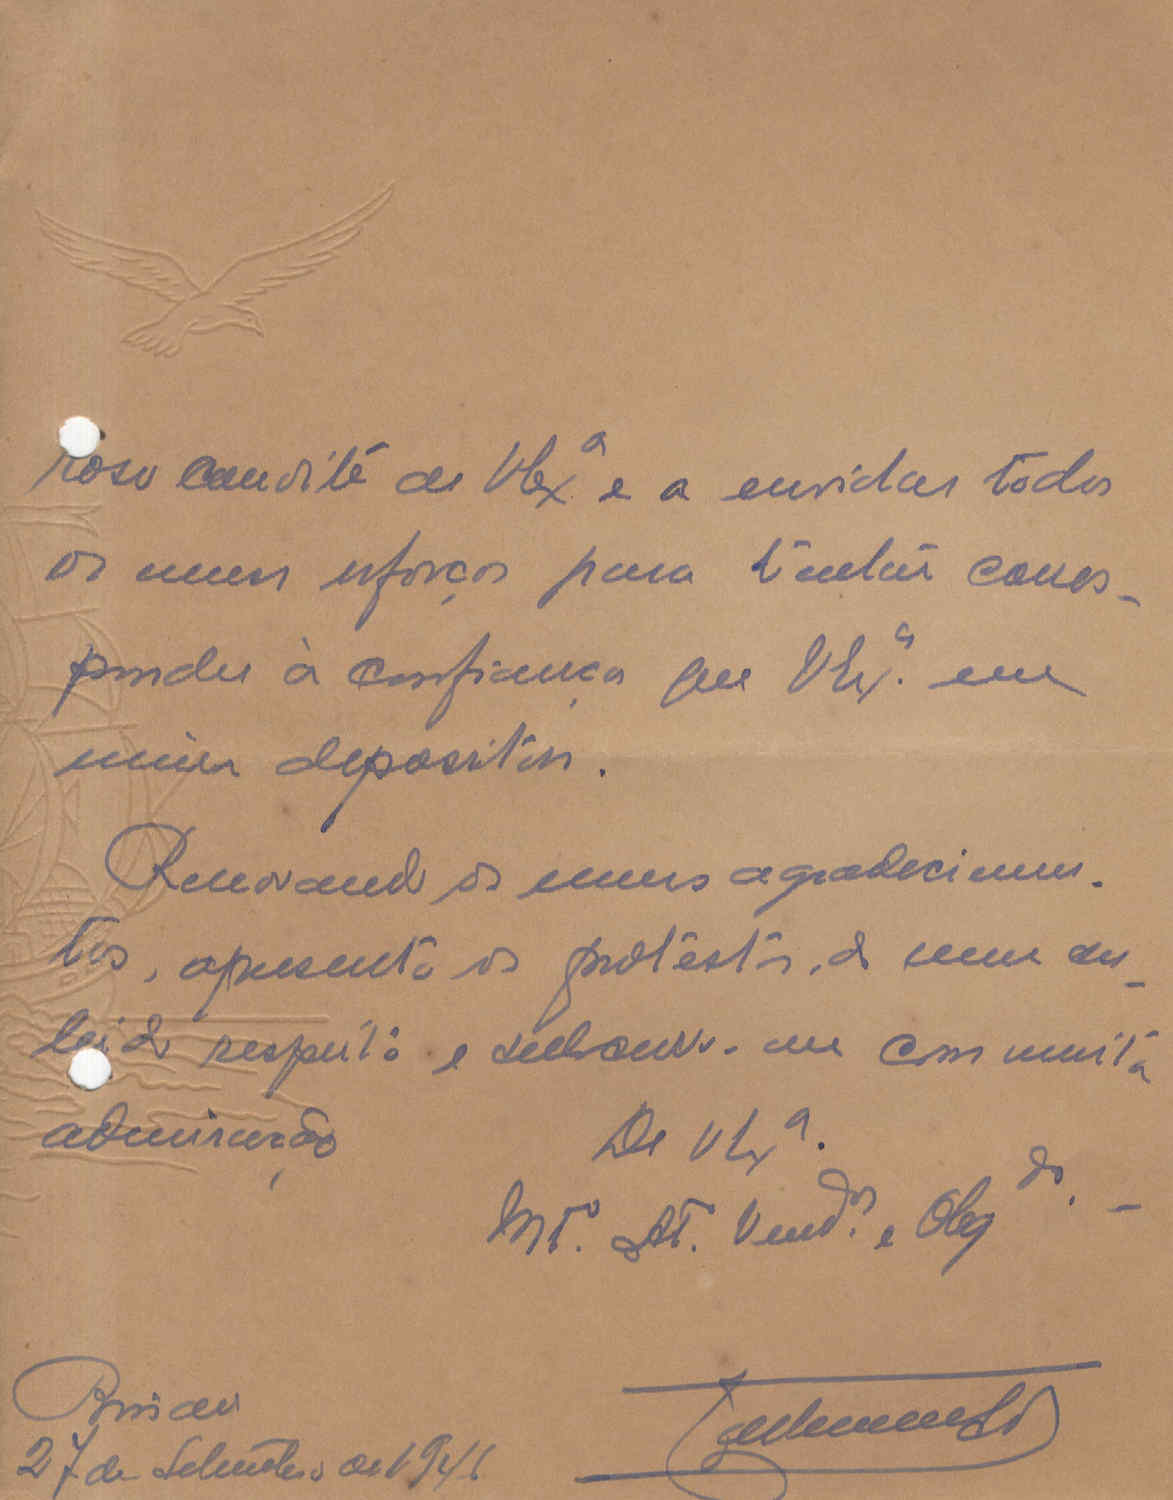 roso convite de V Ex.ª e a envidar todos
os meus esforços para tentar corres-
ponder à confiança que V Ex.ª em
mim depositou.
Renovando os meus agradecimen-
tos, apresento os protestos, do meu
respeito e subscrevo-me com muita
admiração
De V Exª.
Mtº. At. Vendor. e Obgdo. -
27 de Setembro de 1941